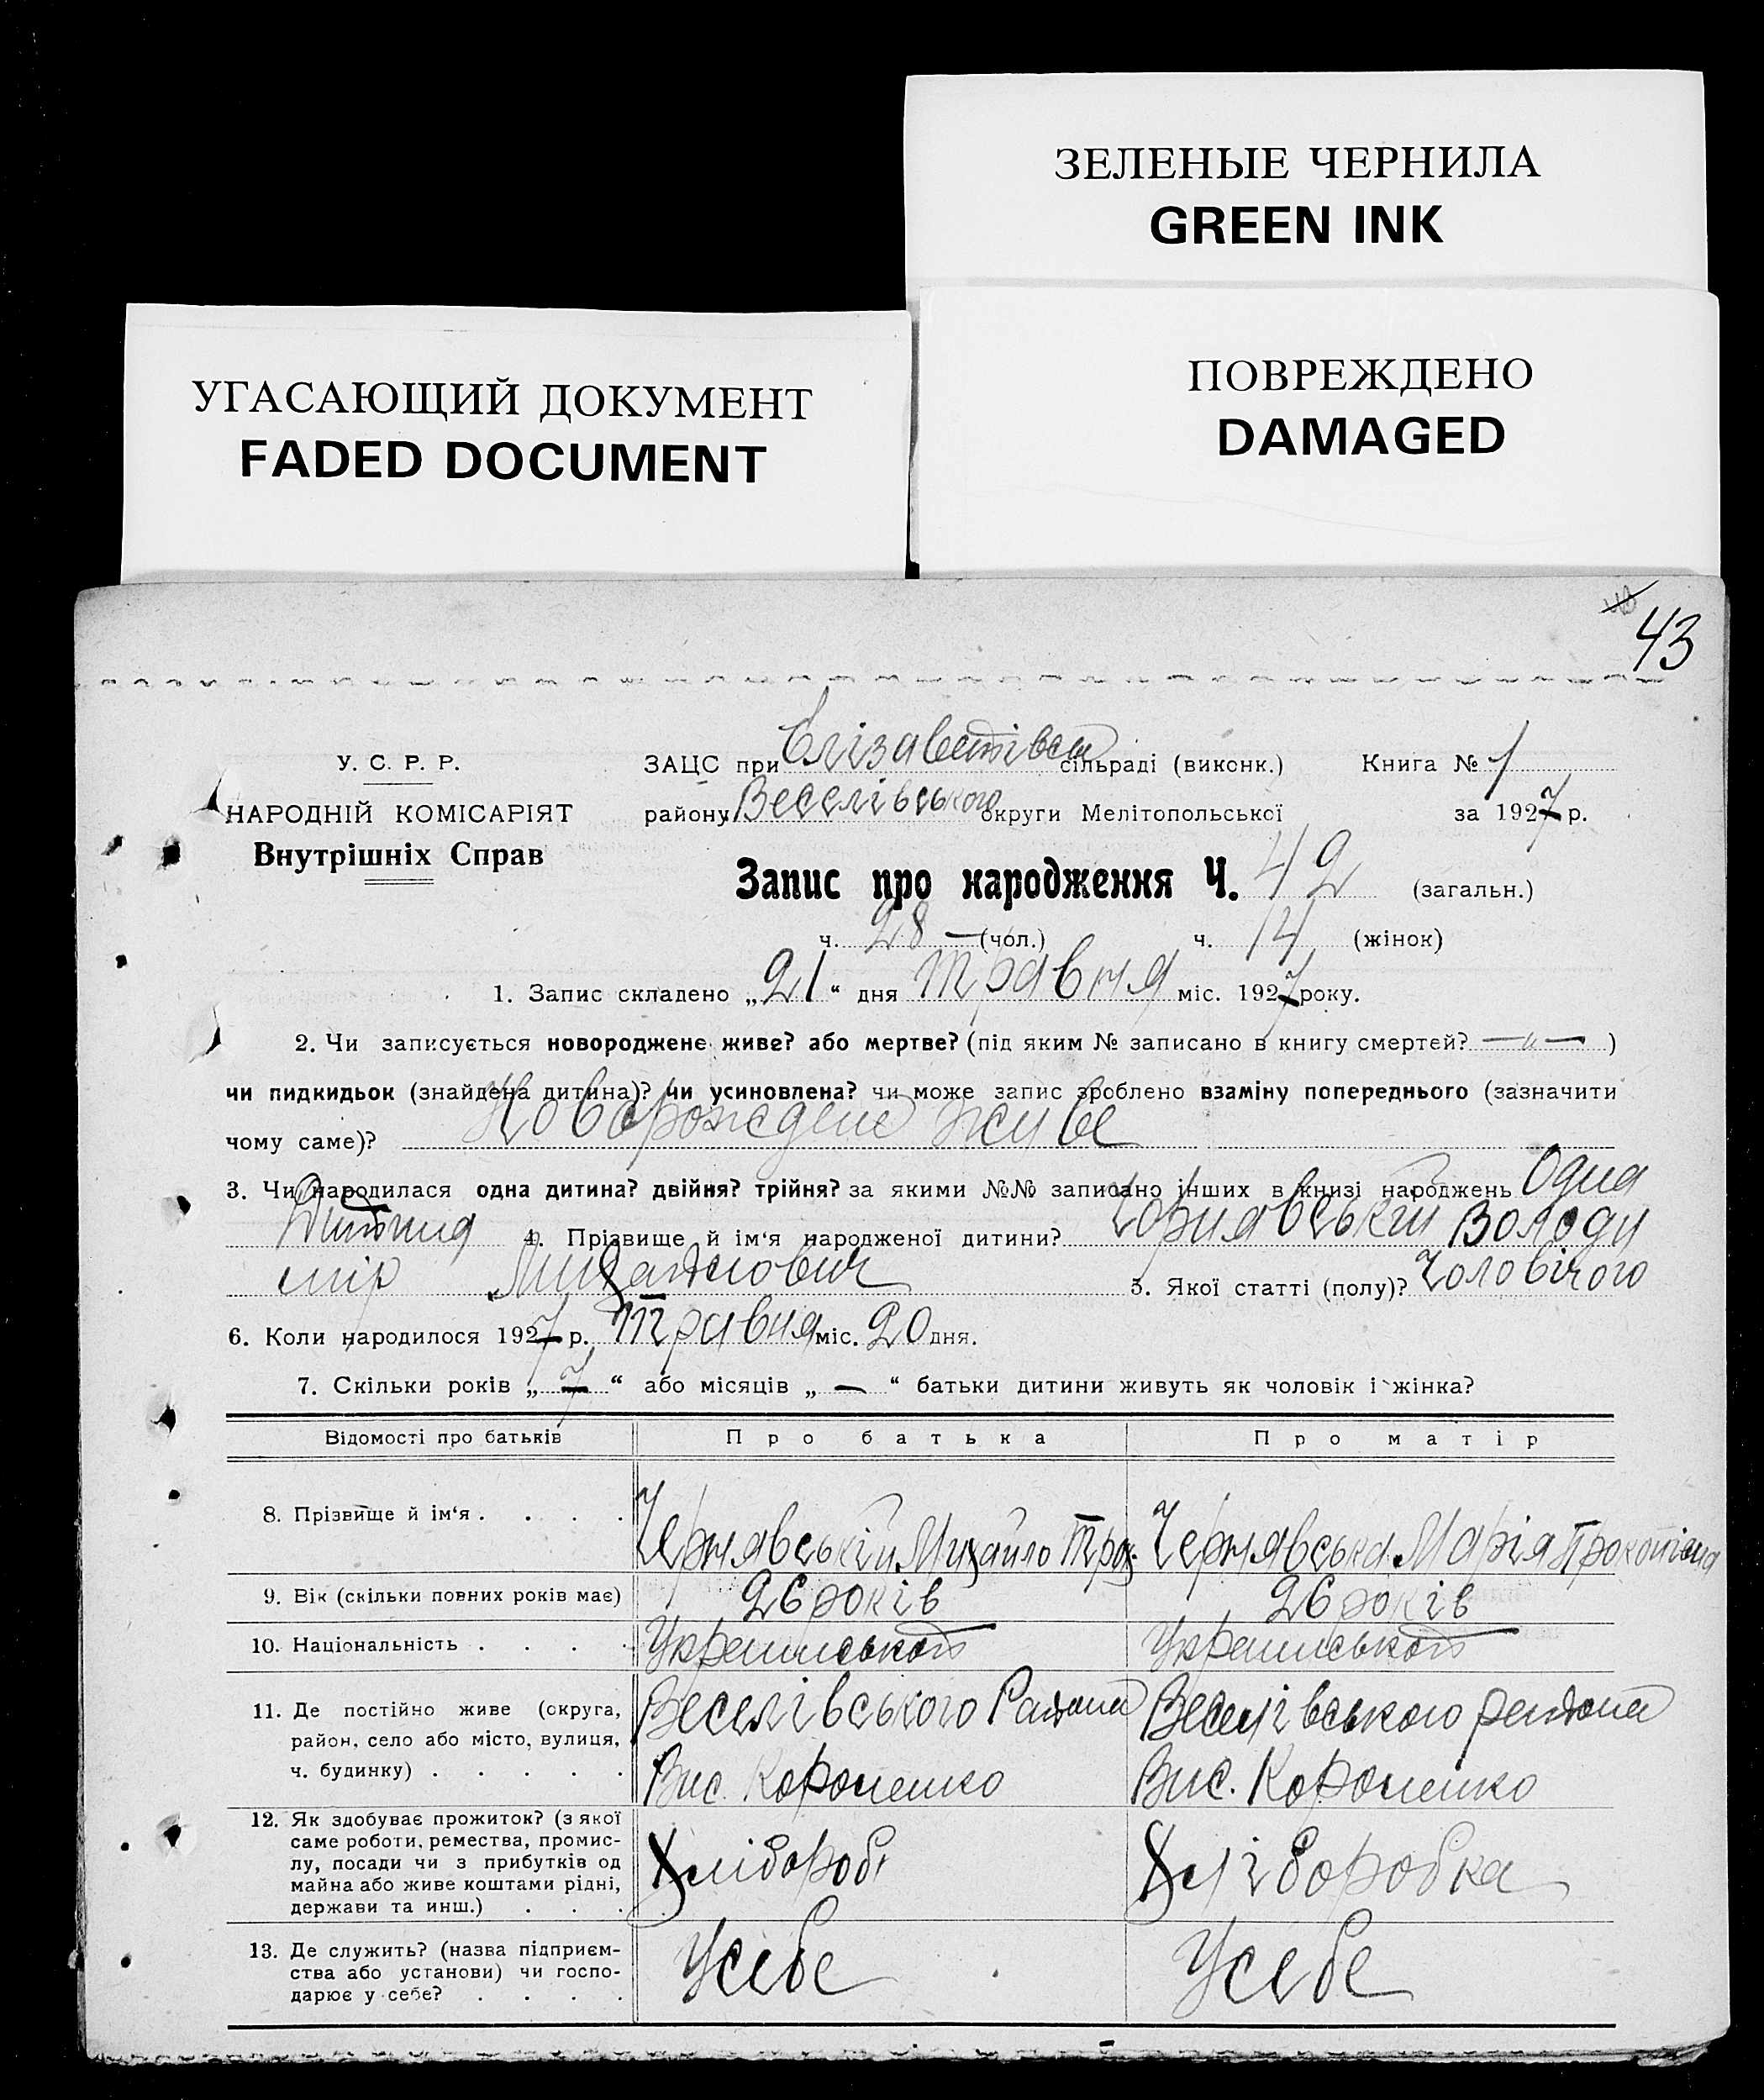 ЗЕЛЕНЫЕ ЧЕРНИЛА
GREEN INK
УГАСАЮЩИЙ ДОКУМЕНТ
FADED DOCUMENT
ПОВРЕЖДЕНО
DAMAGED
43
У. С. Р. Р.
НАРОДНІЙ КОМІСАРІЯТ
Внутрішніх Справ
ЗАЦС при Єлізаветівськ сільраді (виконк.) Книга № 1
району Веселівського округи Мелітопольської за 1927 р.
Запис про народження Ч. 42 (загальн.)
ч. 28 — (чол.) ч. 14 (жінок)
1. Запис складено „21“ дня травня міс. 1927 року.
2. Чи записується новороджене живе? або мертве? (під яким № записано в книгу смертей? —"— )
чи пидкидьок (знайдена дитина)? чи усиновлена? чи може запис зроблено взаміну попереднього (зазначити
чому саме)? Новорожденe живе
3. Чи народилася одна дитина? двійня? трійня? за якими №№ записано інших в книзі народжень Одна
Дитина 4. Прізвище й ім‘я народженої дитини? Чорнявський Володи
мір Михайлович 5. Якої статті (полу)? Чоловічого
6. Коли народилося 1927 р. Травня міс. 20 дня.
7. Скільки років „ 7 “ або місяців „ — “ батьки дитини живуть як чоловік і жінка?
Відомості про батьків Про батька Про матір
8. Прізвище й ім‘я . . . . Чернявській Михайло Троф. Чернявська Марія Прокопівна
9. Вік (скільки повних років має) 26 років 26 років
10. Національність . . . . Украинської Украинської
11. Де постійно живе (округа, Веселівського Района Веселівського района
район, село або місто, вулиця,
ч. будинку) . . . . . Вис. Короленко Вис. Короленко
12. Як здобуває прожиток? (з якої
саме роботи, ремества, промис-
лу, посади чи з прибутків од Хлібороб Хліборобка
майна або живе коштами рідні,
держави та инш.) . . .
13. Де служить? (назва підприєм-
ства або установи) чи госпо- Усебе Усебе
дарює у себе? . . . .